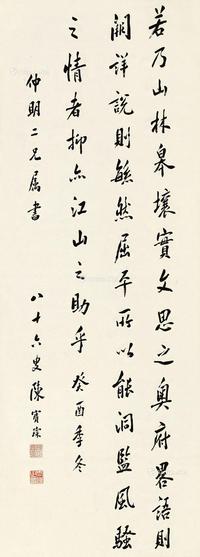 若乃山林皋壤實文思之奧府畧語則
闕詳説則繇然屈平所以能洞監風騷
之情者抑亦江山之助乎癸酉季冬
仲明二兄属書
八十六叟陳寳琛